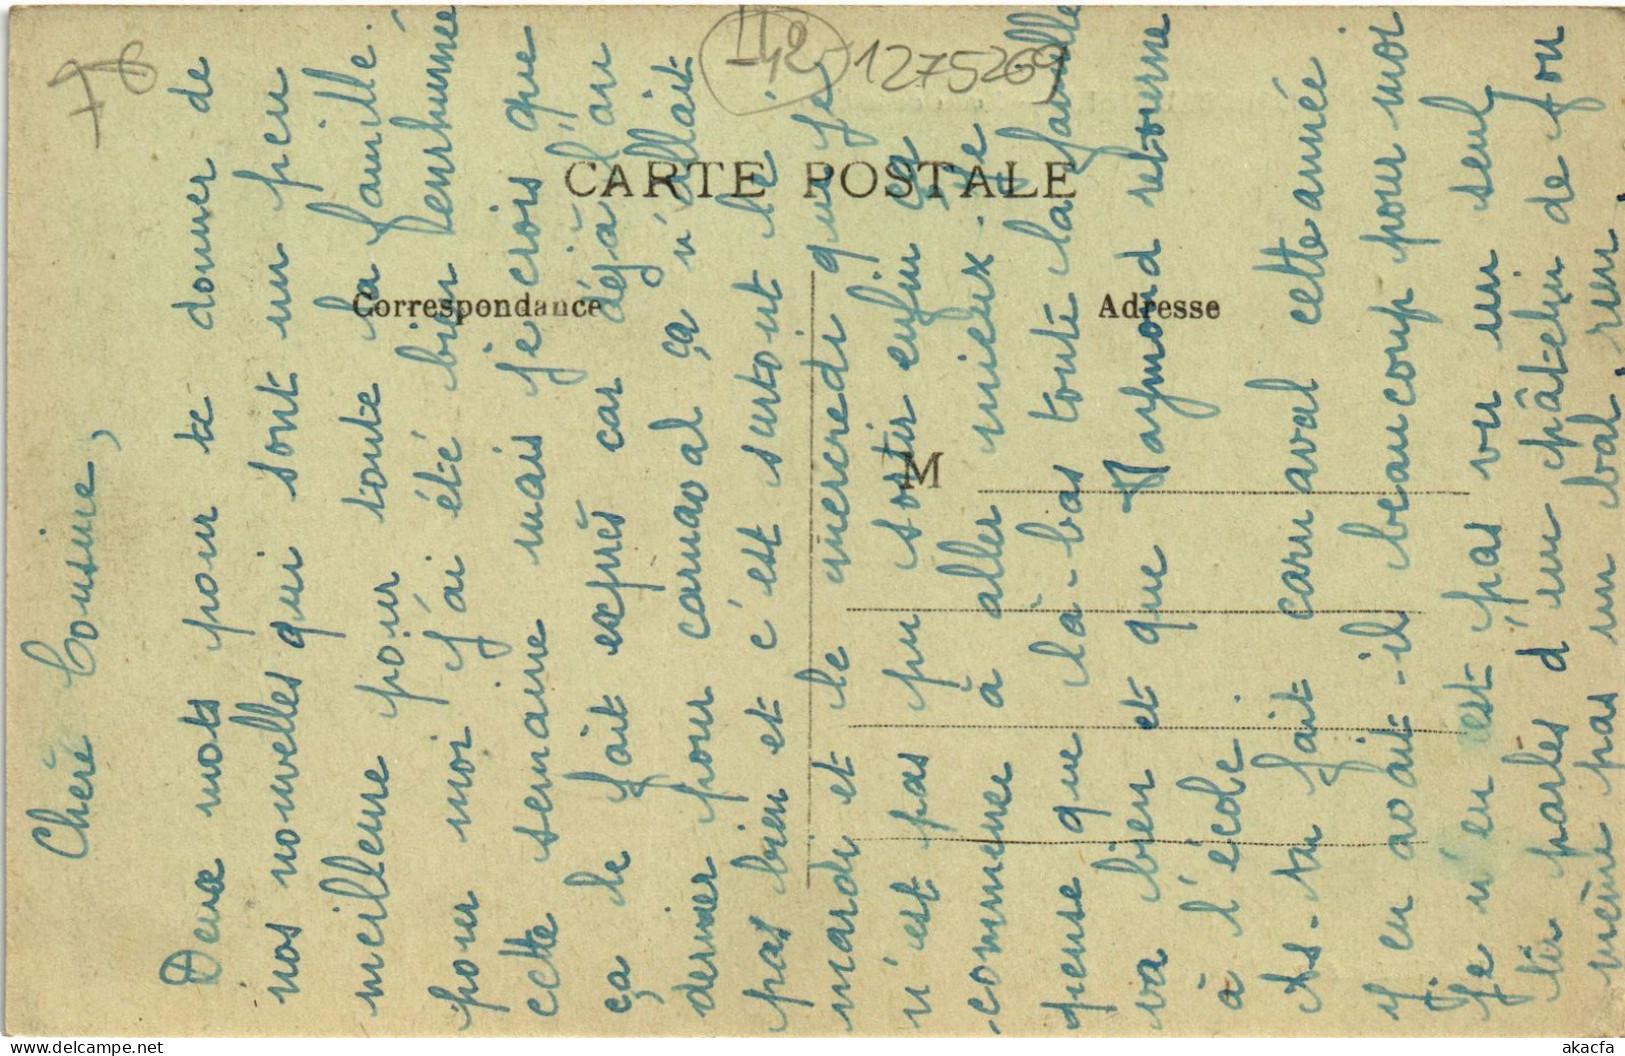 78
I42
1275269
CARTE POSTALE
Correspondance
Adresse
M
Chère Cousine,
Deux mots pour te donner de
nos nouvelles qui sont un peu
meilleure pour toute la famille.
pour moi j'ai été bien renrhumée
cette semaine mais je crois que
ça le fait exprès car déjà l'an
dernier pour carnaval ça n'allait
pas bien et c'est surtout le
mardi et le mercredi que je
n'est pas pu sortir enfin ça
commence à aller mieux. Je
pense que là-bas toute la famille
va bien et que Raymond retourne
à l'école
As-tu fait carnaval cette année.
y en avait-il beaucoup pour moi
Je n'en est pas vu un seul
tu parles d'un pâtelin de fou
même pas un bal, rien.
akacfa